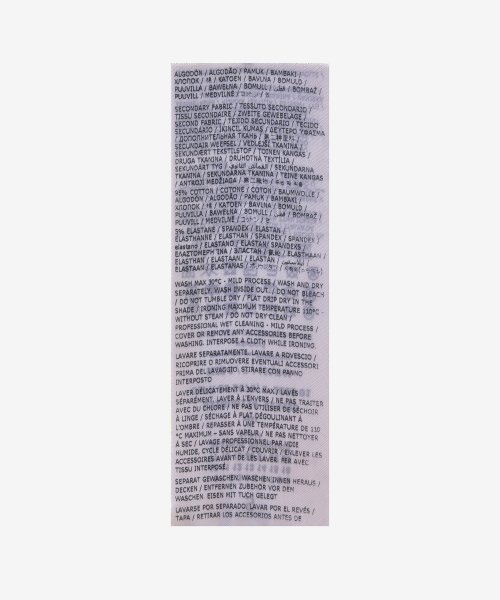 ALGODÓN / ALGODÃO / PAMUK / BAMBAKI /
ХЛОПОК / 棉 / KATOEN / BAVLNA / BOMULD /
PUUVILLA / BAWEŁNA / BOMULL / قطن / BOMBAŽ /
PUUVILL / MEDVILNĖ / コットン / 면
SECONDARY FABRIC / TESSUTO SECONDARIO /
TISSU SECONDAIRE / ZWEITE GEWEBELAGE /
SECOND FABRIC / TEJIDO SECUNDARIO / TECIDO
SECUNDÁRIO / İKİNCİL KUMAŞ / ΔΕΥΤΕΡΟ ΥΦΑΣΜΑ
/ ДОПОЛНИТЕЛЬНАЯ ТКАНЬ /
SECUNDAIR WEEFSEL / VEDLEJŠÍ TKANINA /
SEKUNDÆRT TEKSTILSTOF / TOINEN KANGAS /
DRUGA TKANINA / DRUHOTNÁ TEXTÍLIA /
SEKUNDÄRT TYG / SEKUNDARNA
TKANINA / SEKUNDARNA TKANINA / TEINE KANGAS
/ ANTROJI MEDŽIAGA /
95% COTTON / COTONE / COTON / BAUMWOLLE /
ALGODÓN / ALGODÃO / PAMUK / BAMBAKI /
ХЛОПОК / 棉 / KATOEN / BAVLNA / BOMULD /
PUUVILLA / BAWEŁNA / BOMULL / قطن / BOMBAŽ /
PUUVILL / MEDVILNĖ / コットン / 면
5% ELASTANE / SPANDEX / ELASTAN /
ELASTHANNE / ELASTHAN / SPANDEX /
elastano / ELASTANO / ELASTAN / SPANDEKS /
ΕΛΑΣΤΟΜΕΡΗ ΊΝΑ / ЭЛАСТАН / ELASTHAAN /
ELASTHAN / ELASTAANI / ELASTÁN /
ELASTAAN / ELASTANAS /
WASH MAX 30°C - MILD PROCESS / WASH AND DRY
SEPARATELY. WASH INSIDE OUT. / DO NOT BLEACH
/ DO NOT TUMBLE DRY / FLAT DRIP DRY IN THE
SHADE / IRONING MAXIMUM TEMPERATURE 110°C -
WITHOUT STEAM / DO NOT DRY CLEAN /
PROFESSIONAL WET CLEANING - MILD PROCESS /
COVER OR REMOVE ANY ACCESSORIES BEFORE
WASHING. INTERPOSE A CLOTH WHILE IRONING.
LAVARE SEPARATAMENTE. LAVARE A ROVESCIO /
RICOPRIRE O RIMUOVERE EVENTUALI ACCESSORI
PRIMA DEL LAVAGGIO. STIRARE CON PANNO
INTERPOSTO
LAVER DÉLICATEMENT À 30°C MAX / LAVÉS
SÉPARÉMENT, LAVER À L'ENVERS / NE PAS TRAITER
AVEC DU CHLORE / NE PAS UTILISER DE SÉCHOIR
À LINGE / SÉCHAGE À PLAT DÉGOULINANT À
L'OMBRE / REPASSER À UNE TEMPÉRATURE DE 110
°C MAXIMUM – SANS VAPEUR / NE PAS NETTOYER
À SEC / LAVAGE PROFESSIONNEL PAR VOIE
HUMIDE, CYCLE DÉLICAT / COUVRIR / ENLEVER LES
ACCESSOIRES AVANT DE LES LAVER. FER AVEC
TISSU INTERPOSÉ.
SEPARAT GEWASCHEN. WASCHEN INNEN HERAUS /
DECKEN / ENTFERNEN ZUBEHÖR VOR DEM
WASCHEN. EISEN MIT TUCH GELEGT
LAVARSE POR SEPARADO. LAVAR POR EL REVÉS /
TAPA / RETIRAR LOS ACCESORIOS ANTES DE